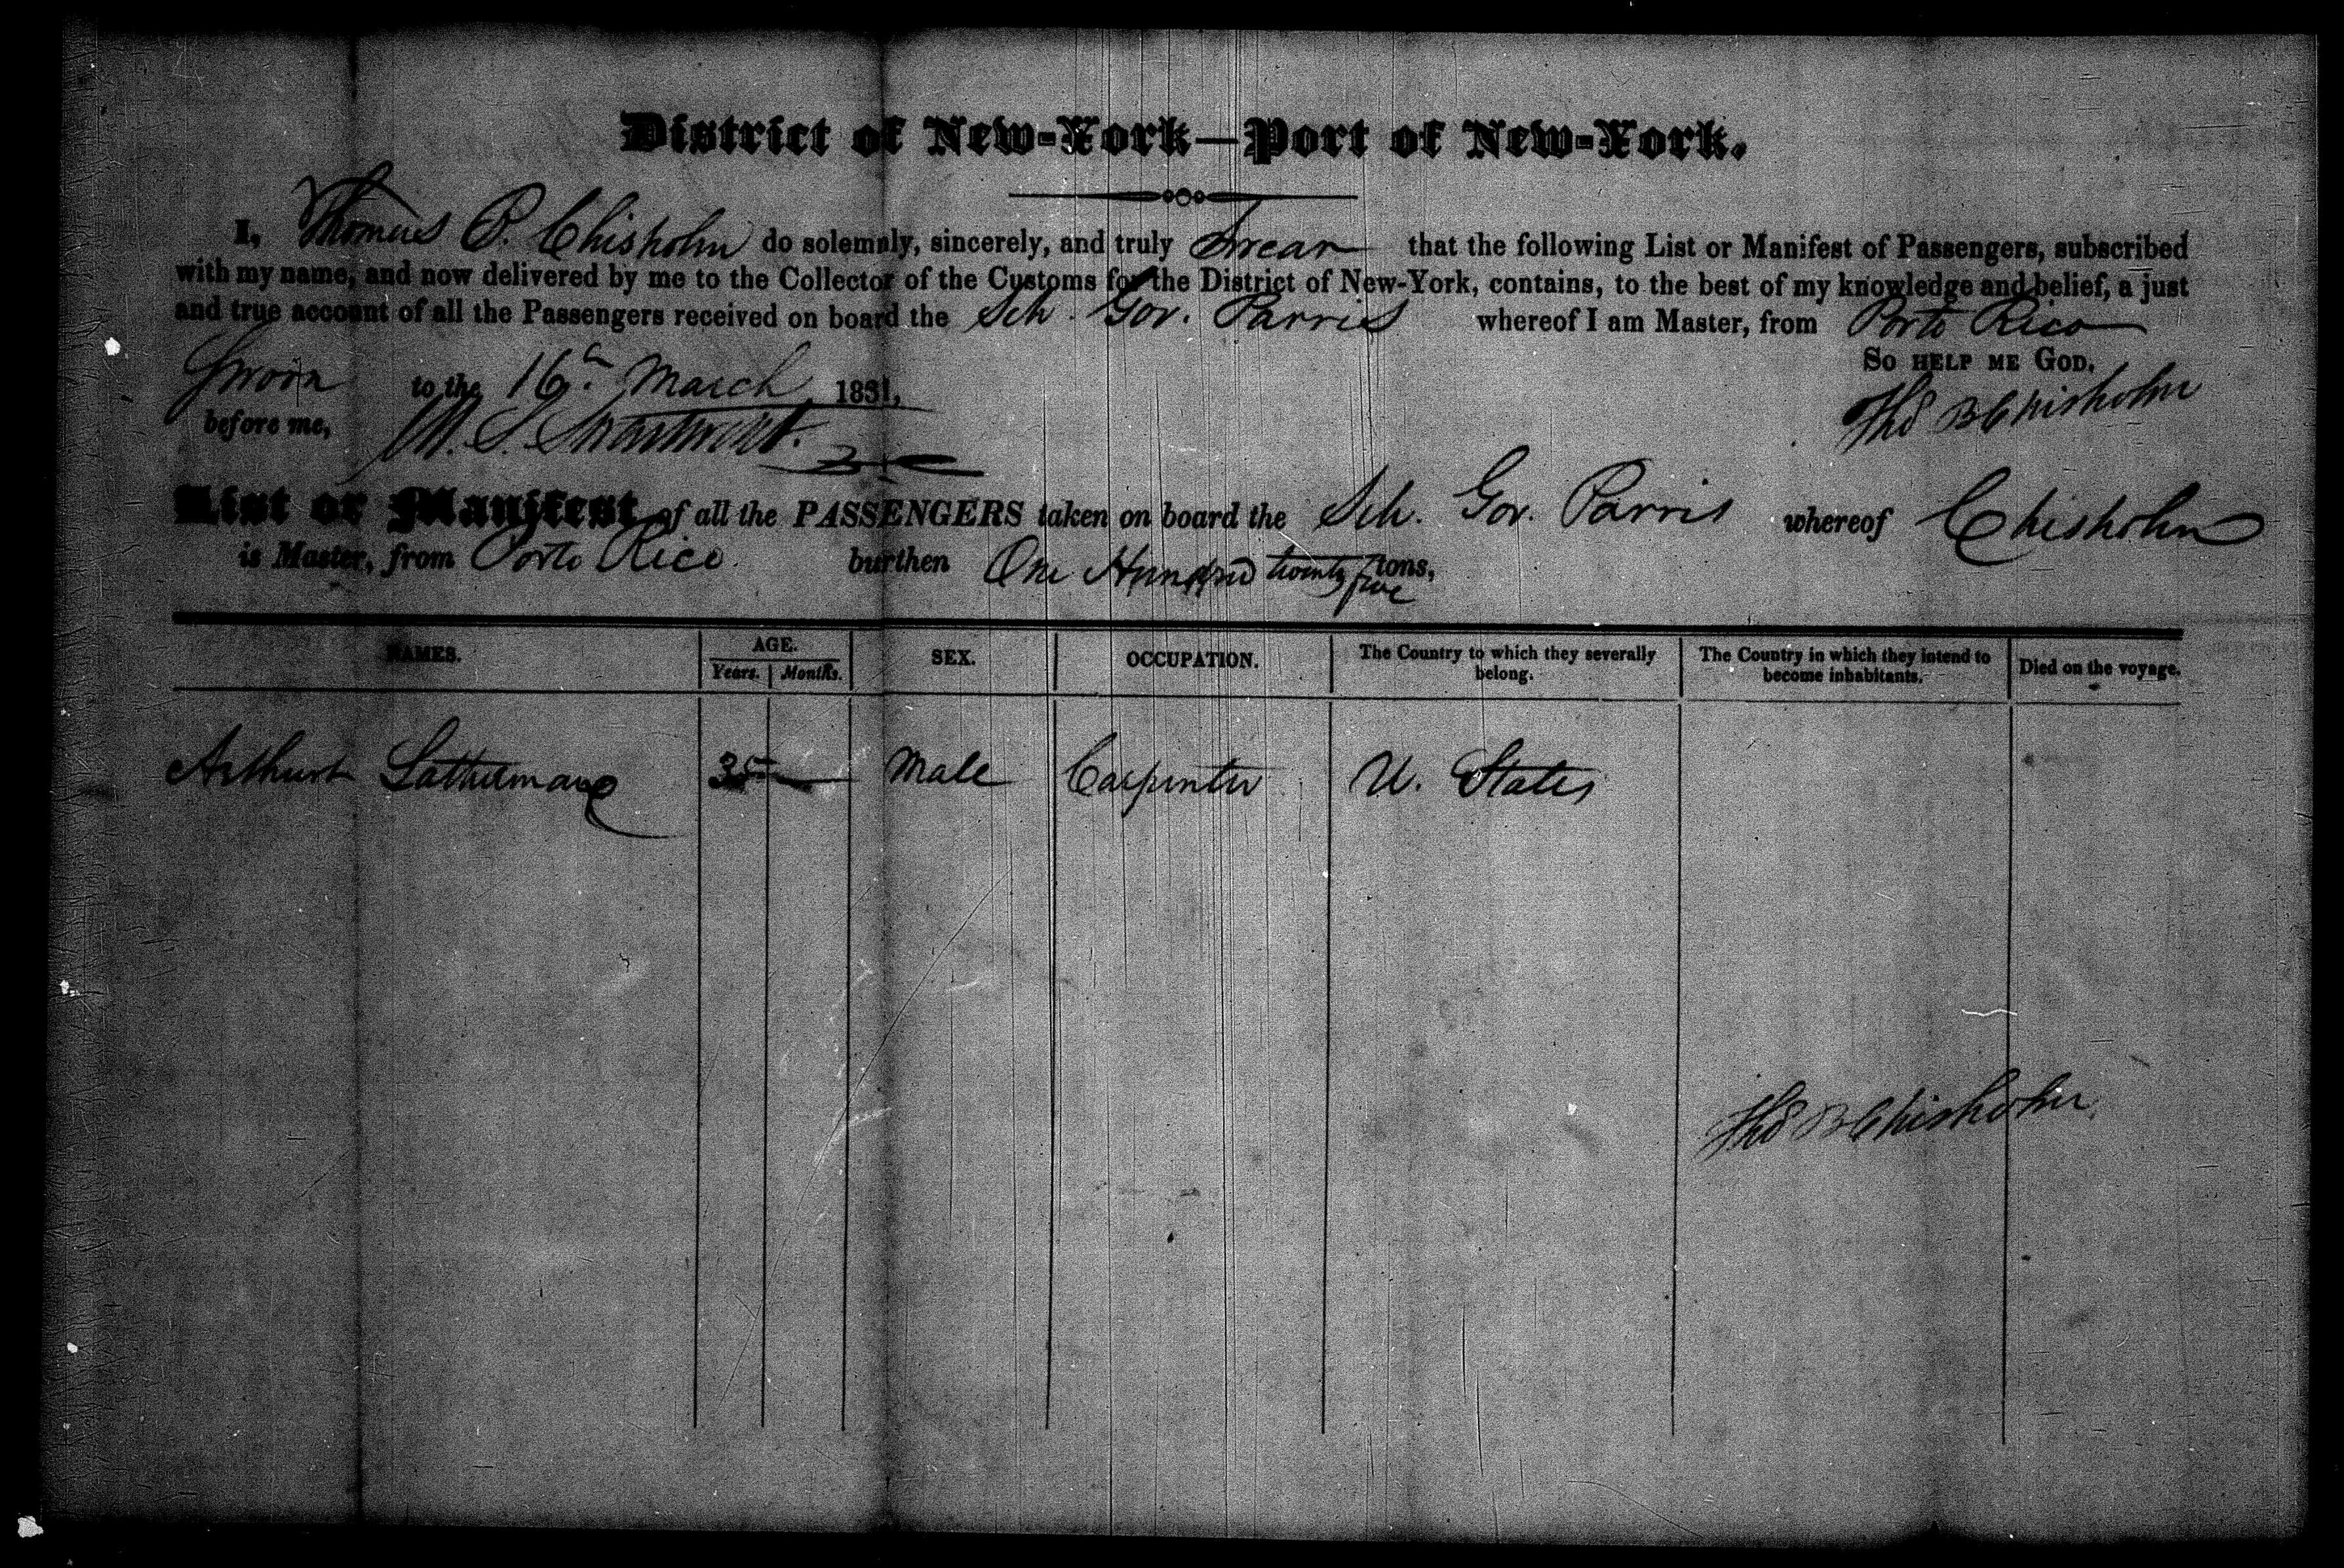 District of New-York—Port of New-York.
I, Thomas P. Chisholm do solemnly, sincerely, and truly Swear that the following List or Manifest of Passengers, subscribed
with my name, and now delivered by me to the Collector of the Customs for the District of New-York, contains, to the best of my knowledge and belief, a just
and true account of all the Passengers received on board the Sch. Gov. Parris whereof I am Master, from Porto Rico
So help me God.
Sworn to the 16th March 1831,
before me, M. S. Swartwout.
Tho B Chisholm
List or Manifest of all the PASSENGERS taken on board the Sch. Gov. Parris whereof Chisholm
is Master, from Porto Rico. burthen One Hundred twenty five tons,
NAMES. AGE. Years. Months. SEX. OCCUPATION. The Country to which they severally belong. The Country in which they intend to become inhabitants. Died on the voyage.
35 Male Carpenter U. States
Tho B Chisholm